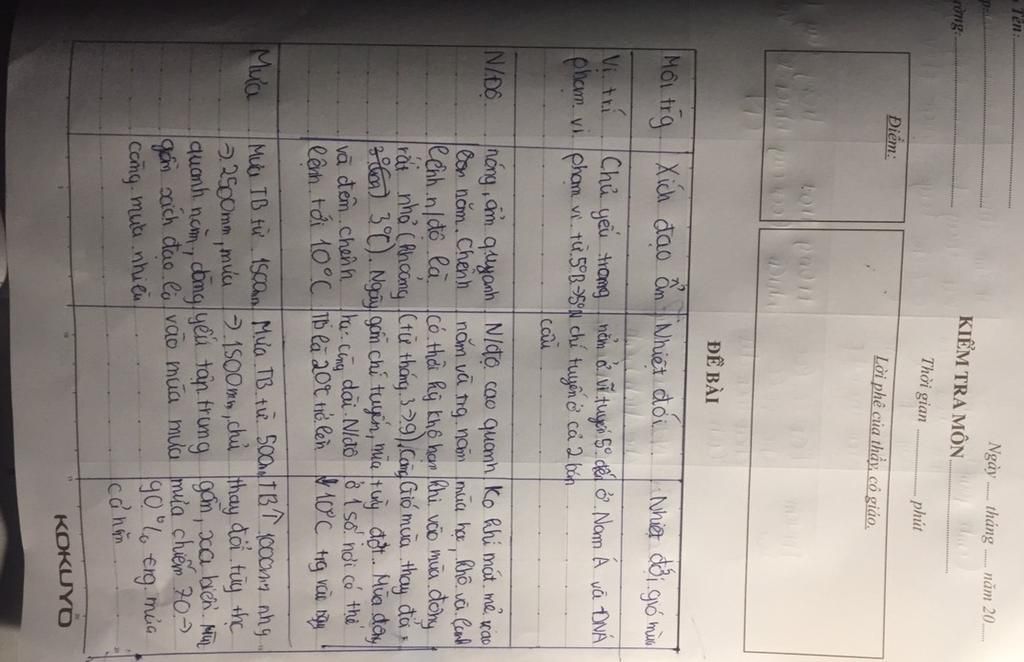 Tên:
Ngày ..... tháng ..... năm 20.....
KIỂM TRA MÔN
Thời gian ............ phút
Điểm:
Lời phê của thầy, cô giáo.
ĐỀ BÀI
Môi trg
Xích đạo ẩm
Nhiệt đới
Nhiệt đới gió mùa
Vị trí
phạm vi
Chủ yếu trong
phạm vi từ 5°B
nằm ở vĩ tuyến 5° đến
chí tuyến ở cả 2 bán
cầu
ở Nam Á và ĐNÁ
N/độ
nóng, ẩm quanh
năm. Chênh
lệnh n/độ là
rất nhỏ (khoảng
3°C). Ngày
và đêm chênh
lệnh tới 10°C
N/độ cao quanh
năm và trg năm
có thời kỳ khô hạn
(từ tháng 3->9), càng
gần chí tuyến, mùa
hạ càng dài. N/độ
TB là 20°C trở lên
Ko khí mát mẻ vào
mùa hạ, khô và lạnh
khi vào mùa đông
Gió mùa thay đổi
tuỳ đợt. Mùa đông
ở 1 số nơi có thể
↓ 10°C trg vài ngày
Mưa
Mưa TB từ 1500mm
-> 2500mm, mưa
quanh năm, càng
gần xích đạo là
càng mưa nhiều
Mưa TB từ 500mm
-> 1500mm, chủ
yếu tập trung
vào mùa mưa
TB ↑ 1000mm nhg
thay đổi tùy thc
gần, xa biển. Mùa
mưa chiếm 70->
90% lượng mưa
cả năm
KOKUYO